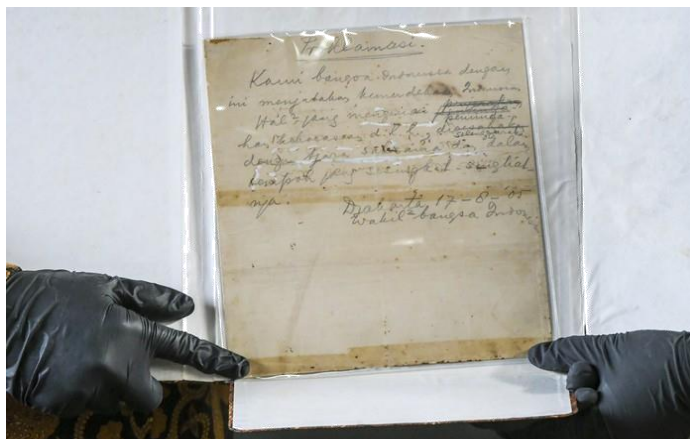 Proklamasi.
Kami bangsa Indonesia dengan
ini menjatakan kemerdekaan Indonesia
Hal2 jang mengenai
peminda-
han kekoeasaan d.l.l.,
dengan tjara saksama dan dalam
tempoh jang sesingkat-singkat-
nja.
Djakarta, 17-8-'05
Wakil2 bangsa Indonesia